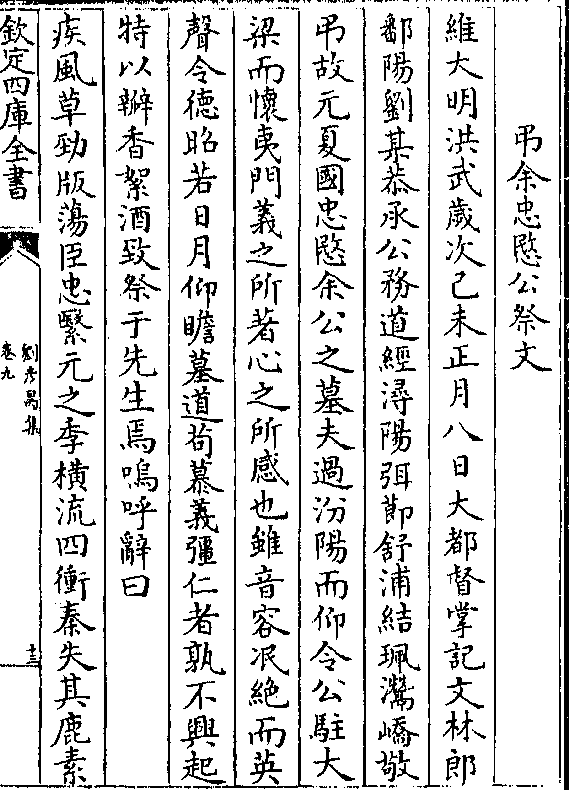 弔余忠愍公祭文
維大明洪武歲次己未正月八日大都督掌記文林郎
鄱陽劉某恭承公務道經潯陽弭節舒浦結珮灊嶠敬
弔故元夏國忠愍余公之墓夫過汾陽而仰令公駐大
梁而懷夷門義之所著心之所感也雖音容泯絶而英
聲令德昭若日月仰瞻墓道茍慕義彊仁者孰不興起
特以瓣香絮酒致祭于先生焉嗚呼辭曰
疾風草勁版蕩臣忠繄元之季橫流四衝秦失其鹿素
欽定四庫全書
劉彥昺集
卷九
十三